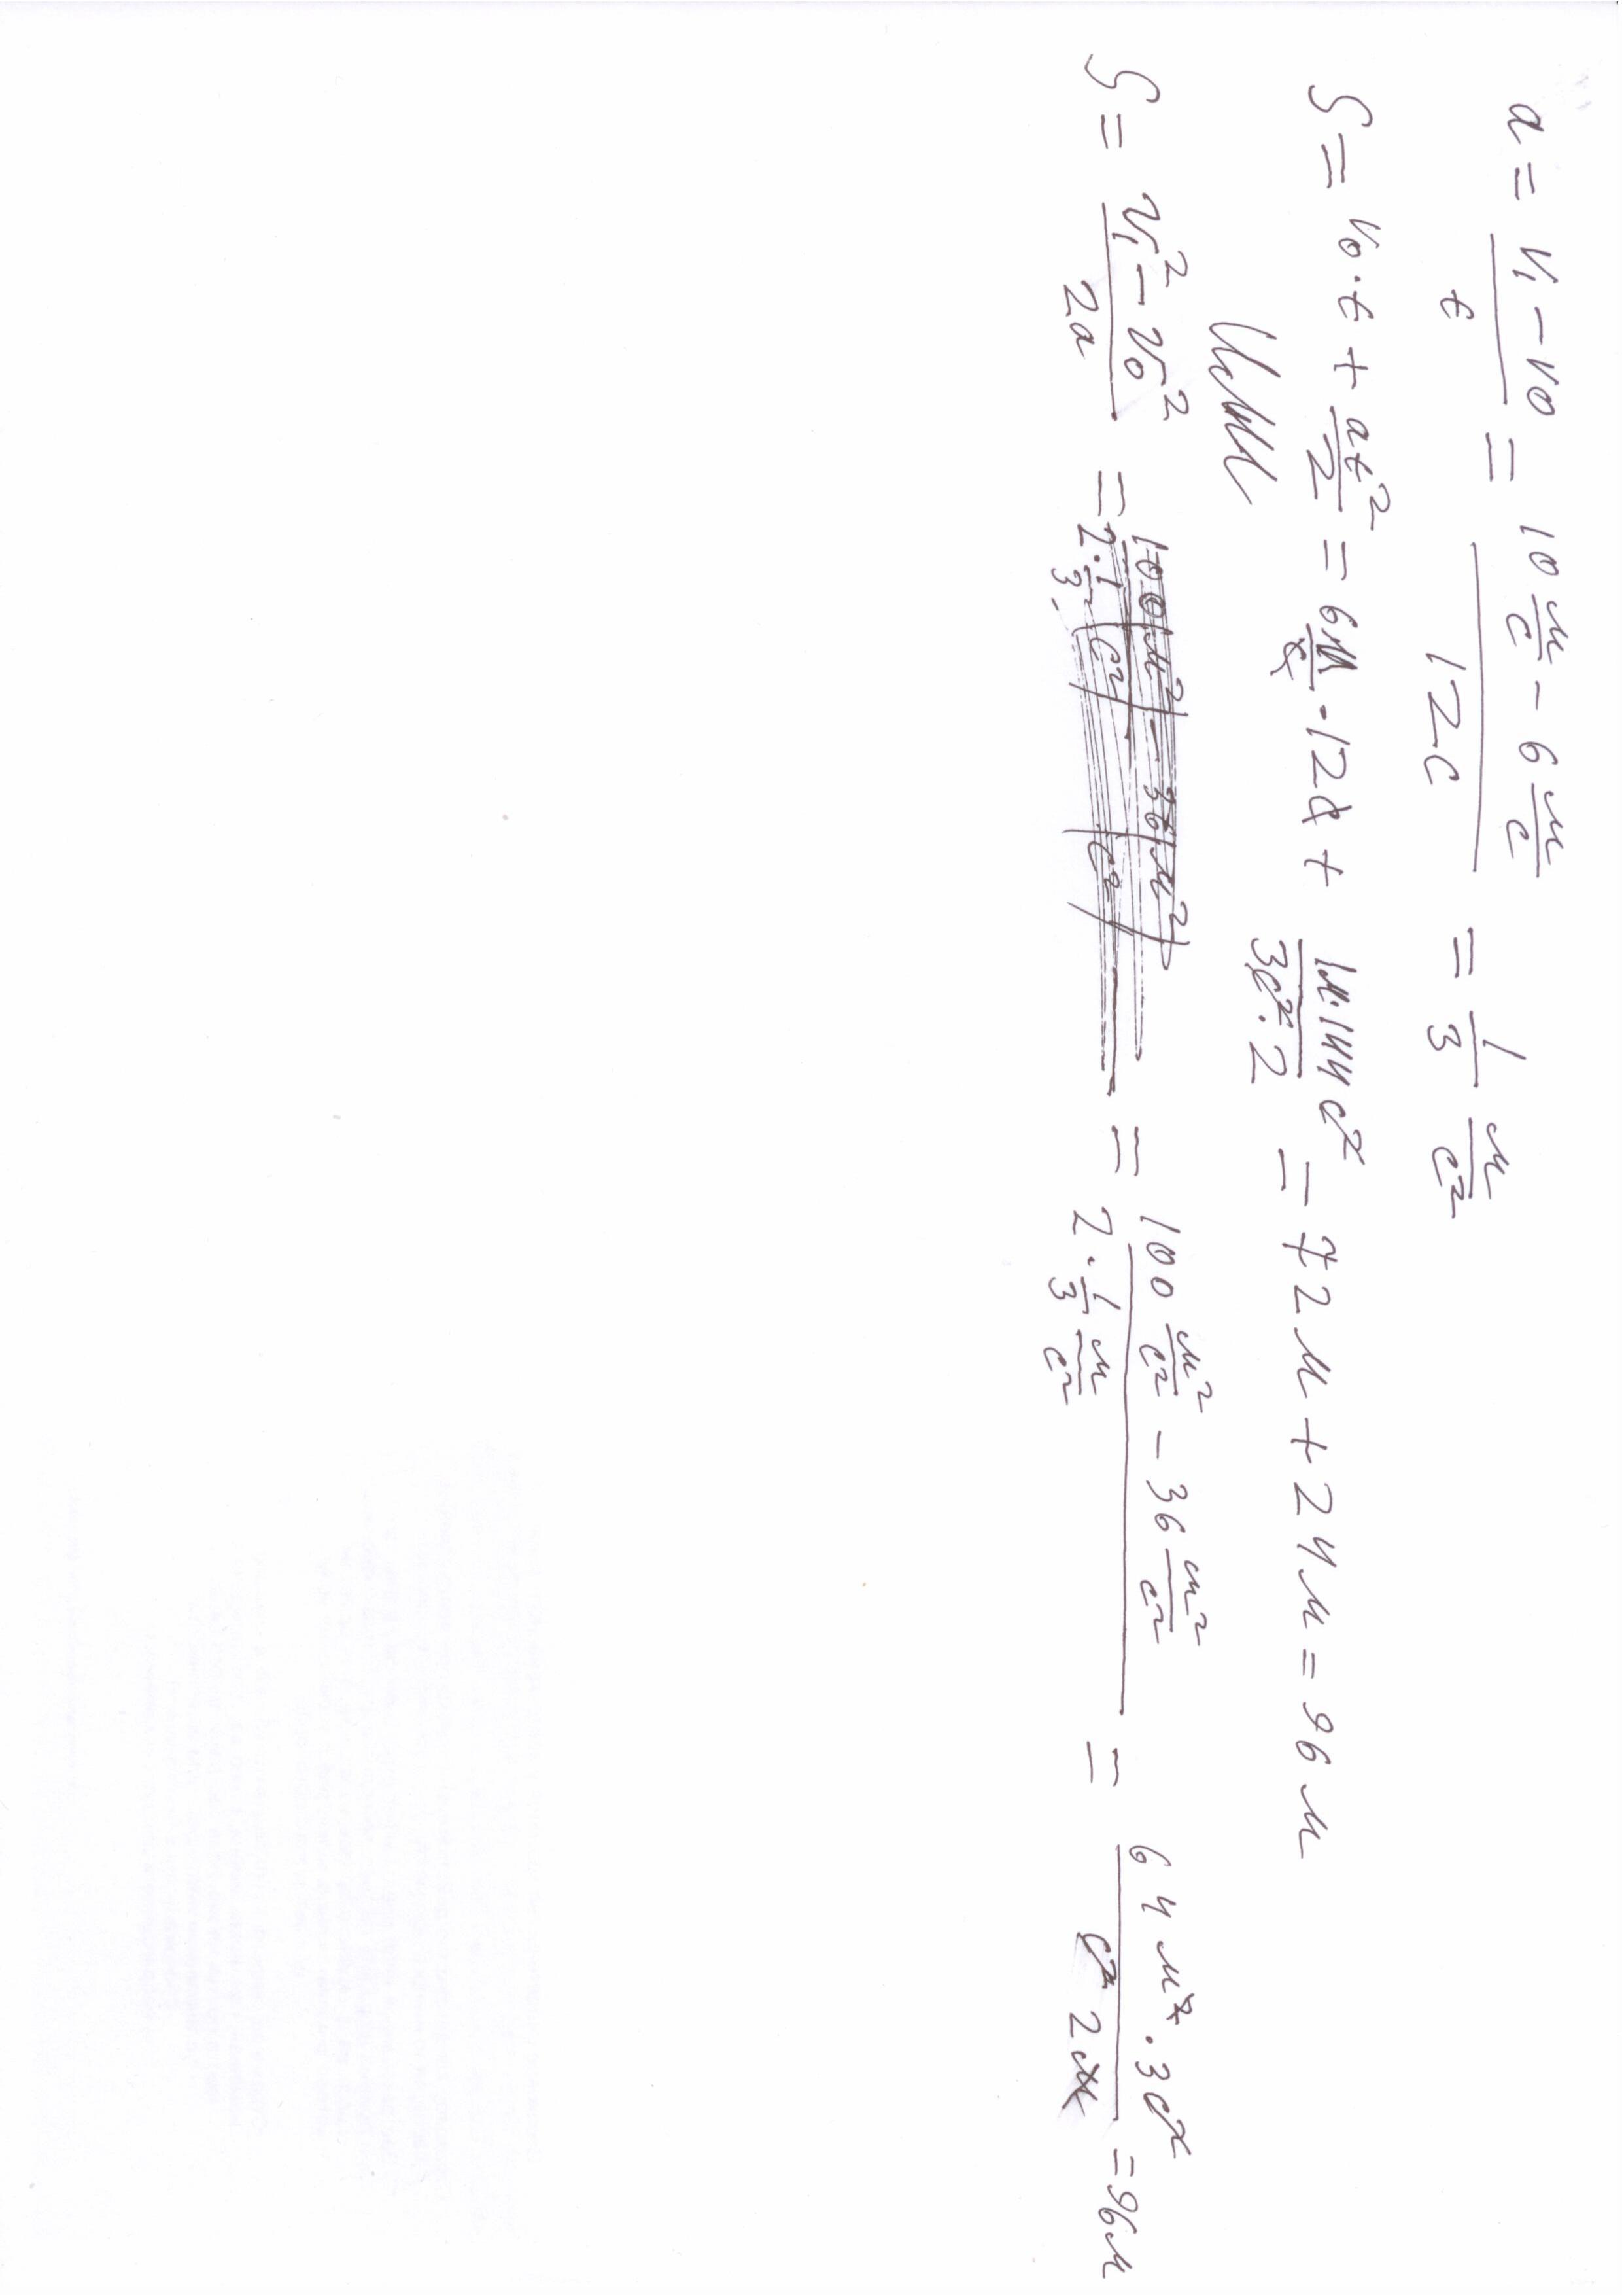 a = (v₁ − v₀)/t = (10 м/с − 6 м/с)/12с = 1/3 м/с²
S = v₀·t + at²/2 = 6м/с · 12с + 1м·144с²/3с²·2 = 72м + 24м = 96м
Или
S = (v₁² − v₀²)/2a = = (100 м²/с² − 36 м²/с²)/(2 · 1/3 м/с²) = 64м²·3с²/с²2м = 96м